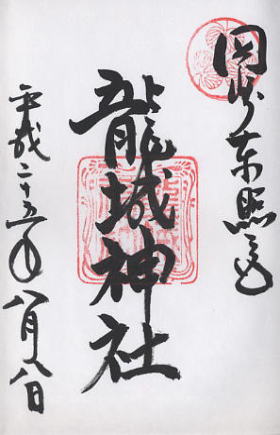 岡崎東照宮
龍城神社
平成二十五年八月八日